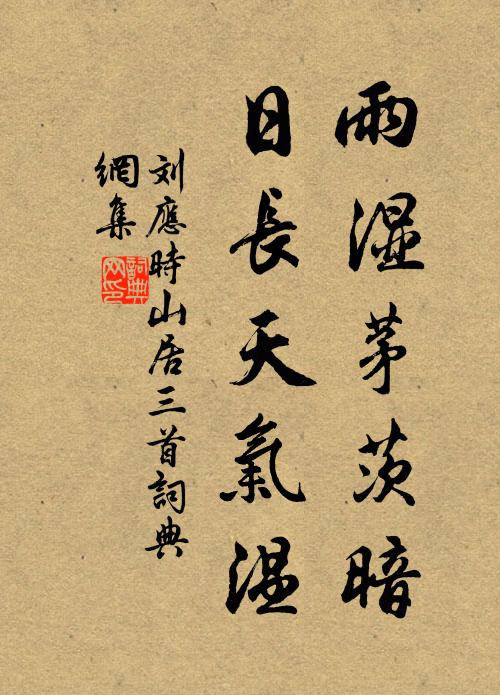 雨湿茅茨暗
日長天氣温
刘應時山居三首詞典
網集
詞典網印